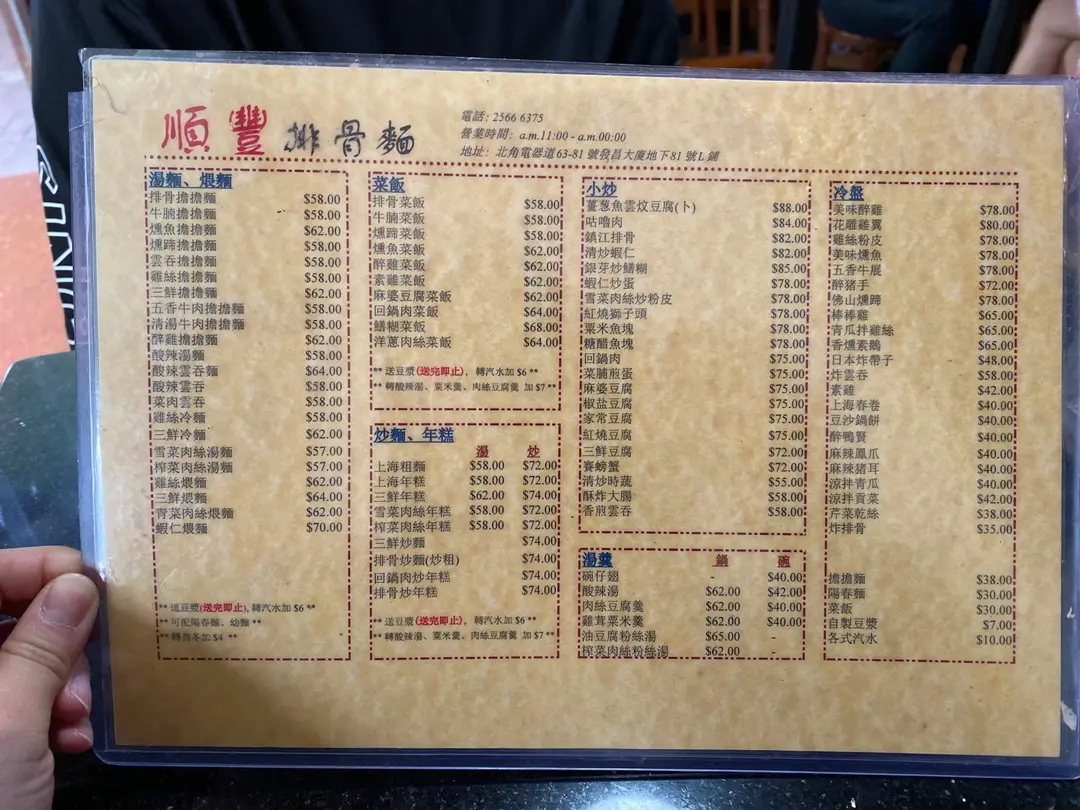 順豐排骨麵
電話: 2566 6375
營業時間: a.m.11:00 - a.m.00:00
地址: 北角電器道63-81 號發昌大廈地下81 號L 鋪
湯麵、煨麵
排骨擔擔麵 $58.00
牛腩擔擔麵 $58.00
燻魚擔擔麵 $62.00
燻蹄擔擔麵 $58.00
雲吞擔擔麵 $58.00
雞絲擔擔麵 $58.00
三鮮擔擔麵 $62.00
五香牛肉擔擔麵 $58.00
清湯牛肉擔擔麵 $58.00
醉雞擔擔麵 $62.00
酸辣湯麵 $58.00
酸辣雲吞麵 $64.00
酸辣雲吞 $58.00
菜肉雲吞 $58.00
雞絲冷麵 $58.00
三鮮冷麵 $62.00
雪菜肉絲湯麵 $57.00
榨菜肉絲湯麵 $57.00
雞絲煨麵 $62.00
三鮮煨麵 $64.00
青菜肉絲煨麵 $62.00
蝦仁煨麵 $70.00
** 送豆漿(送完即止), 轉汽水加 $6 **
** 可配陽春麵、幼麵 **
** 轉烏冬加 $4 **
菜飯
排骨菜飯 $58.00
牛腩菜飯 $58.00
燻蹄菜飯 $58.00
燻魚菜飯 $62.00
醉雞菜飯 $62.00
素雞菜飯 $62.00
麻婆豆腐菜飯 $62.00
回鍋肉菜飯 $64.00
鱔糊菜飯 $68.00
洋蔥肉絲菜飯 $64.00
** 送豆漿(送完即止), 轉汽水加 $6 **
** 轉酸辣湯、粟米羹、肉絲豆腐羹 加 $7 **
炒麵、年糕
湯 炒
上海粗麵 $58.00 $72.00
上海年糕 $58.00 $72.00
三鮮年糕 $62.00 $74.00
雪菜肉絲年糕 $58.00 $72.00
榨菜肉絲年糕 $58.00 $72.00
三鮮炒麵 $74.00
排骨炒麵(炒粗) $74.00
回鍋肉炒年糕 $74.00
排骨炒年糕 $74.00
** 送豆漿(送完即止), 轉汽水加 $6 **
** 轉酸辣湯、粟米羹、肉絲豆腐羹 加 $7 **
小炒
薑蔥魚雲炆豆腐(卜) $88.00
咕嚕肉 $84.00
鎮江排骨 $82.00
清炒蝦仁 $82.00
銀芽炒鱔糊 $85.00
蝦仁炒蛋 $78.00
雪菜肉絲炒粉皮 $78.00
紅燒獅子頭 $78.00
粟米魚塊 $78.00
糖醋魚塊 $78.00
回鍋肉 $75.00
菜脯煎蛋 $75.00
麻婆豆腐 $75.00
椒鹽豆腐 $75.00
家常豆腐 $75.00
紅燒豆腐 $75.00
三鮮豆腐 $72.00
賽螃蟹 $72.00
清炒時蔬 $55.00
酥炸大腸 $58.00
香煎雲吞 $58.00
湯羹 鍋 碗
碗仔翅 - $40.00
酸辣湯 $62.00 $42.00
肉絲豆腐羹 $62.00 $40.00
雞茸粟米羹 $62.00 $40.00
油豆腐粉絲湯 $65.00 -
榨菜肉絲粉絲湯 $62.00 -
冷盤
美味醉雞 $78.00
花雕雞翼 $80.00
雞絲粉皮 $78.00
美味燻魚 $78.00
五香牛展 $78.00
醉豬手 $72.00
佛山燻蹄 $78.00
棒棒雞 $65.00
青瓜拌雞絲 $65.00
香燻素鵝 $65.00
日本炸帶子 $48.00
炸雲吞 $58.00
素雞 $42.00
上海春卷 $40.00
豆沙鍋餅 $40.00
醉鴨賢 $40.00
麻辣鳳爪 $40.00
麻辣豬耳 $40.00
涼拌青瓜 $40.00
涼拌貢菜 $42.00
芹菜乾絲 $38.00
炸排骨 $35.00
擔擔麵 $38.00
陽春麵 $30.00
菜飯 $30.00
自製豆漿 $7.00
各式汽水 $10.00